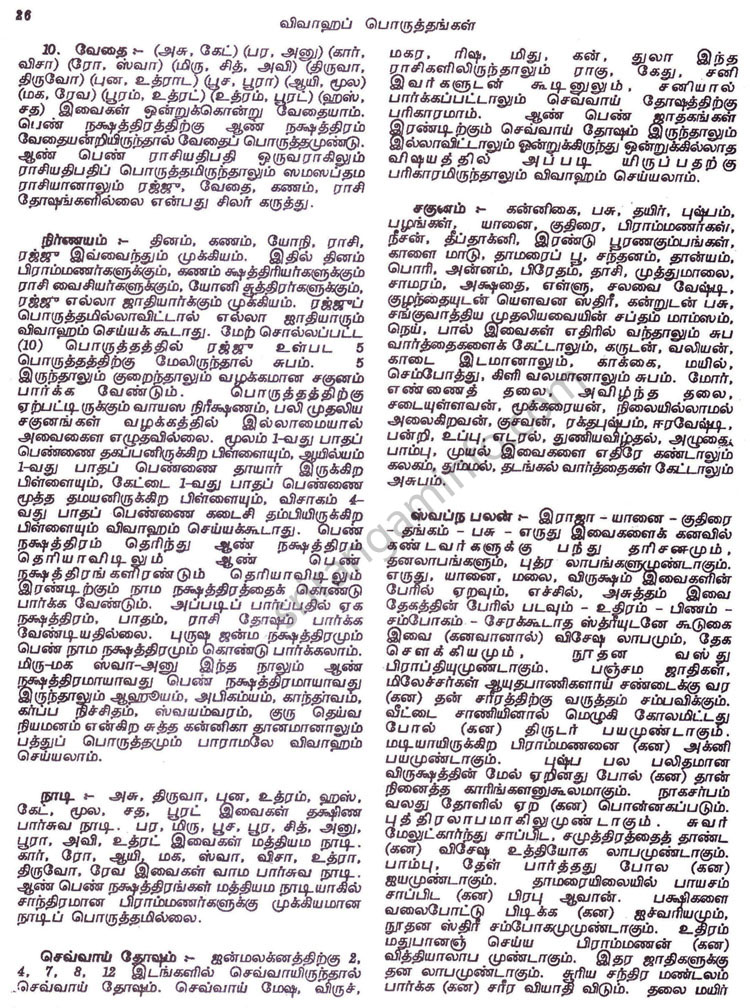 26
விவாஹப் பொருத்தங்கள்
10. வேதை :- (அசு, கேட்) (பர, அனு) (கார்,
விசா) (ரோ, ஸ்வா) (மிரு, சித், அவி) (திருவா,
திருவோ) (புன, உத்ராட) (பூச, பூரா) (ஆயி, மூல)
(மக, ரேவ) (பூரம், உத்ரட்) (உத்ரம், பூரட்) (ஹஸ்,
சத) இவைகள் ஒன்றுக்கொன்று வேதையாம்.
பெண் நக்ஷத்திரத்திற்கு ஆண் நக்ஷத்திரம்
வேதையன்றியிருந்தால் வேதைப் பொருத்தமுண்டு.
ஆண் பெண் ராசியதிபதி ஒருவராகிலும்
ராசியதிபதிப் பொருத்தமிருந்தாலும் ஸமஸப்தம
ராசியானாலும் ரஜ்ஜு, வேதை, கணம், ராசி
தோஷங்களில்லை என்பது சிலர் கருத்து.
நிர்ணயம் :- தினம், கணம், யோனி, ராசி,
ரஜ்ஜு இவ்வைந்தும் முக்கியம். இதில் தினம்
பிராம்மணர்களுக்கும், கணம் க்ஷத்திரியர்களுக்கும்
ராசி வைசியர்களுக்கும், யோனி சூத்திரர்களுக்கும்,
ரஜ்ஜு எல்லா ஜாதியார்க்கும் முக்கியம். ரஜ்ஜுப்
பொருத்தமில்லாவிட்டால் எல்லா ஜாதியாரும்
விவாஹம் செய்யக் கூடாது. மேற் சொல்லப்பட்ட
(10) பொருத்தத்தில் ரஜ்ஜு உள்பட 5
பொருத்தத்திற்கு மேலிருந்தால் சுபம். 5
இருந்தாலும் குறைந்தாலும் வழக்கமான சகுனம்
பார்க்க வேண்டும். பொருத்தத்திற்கு
ஏற்பட்டிருக்கும் வாயஸ நிரீக்ஷணம், பலி முதலிய
சகுனங்கள் வழக்கத்தில் இல்லாமையால்
அவைகளை எழுதவில்லை. மூலம் 1-வது பாதப்
பெண்ணை தகப்பனிருக்கிற பிள்ளையும், ஆயில்யம்
1-வது பாதப் பெண்ணை தாயார் இருக்கிற
பிள்ளையும், கேட்டை 1-வது பாதப் பெண்ணை
மூத்த தமயனிருக்கிற பிள்ளையும், விசாகம் 4-
வது பாதப் பெண்ணை கடைசி தம்பியிருக்கிற
பிள்ளையும் விவாஹம் செய்யக்கூடாது. பெண்
நக்ஷத்திரம் தெரிந்து ஆண் நக்ஷத்திரம்
தெரியாவிடிலும் ஆண் பெண்
நக்ஷத்திரங்களிரண்டும் தெரியாவிடிலும்
இரண்டிற்கும் நாம நக்ஷத்திரத்தைக் கொண்டு
பார்க்க வேண்டும். அப்படிப் பார்ப்பதில் ஏக
நக்ஷத்திரம், பாதம், ராசி தோஷம் பார்க்க
வேண்டியதில்லை. புருஷ ஜன்ம நக்ஷத்திரமும்
பெண் நாம நக்ஷத்திரமும் கொண்டு பார்க்கலாம்.
மிரு-மக ஸ்வா-அனு இந்த நாலும் ஆண்
நக்ஷத்திரமாயாவது பெண் நக்ஷத்திரமாயாவது
இருந்தாலும் ஆஹூயம், அபிகம்யம், காந்தர்வம்,
கர்ப்ப நிச்சிதம், ஸ்வயம்வரம், குரு தெய்வ
நியமனம் என்கிற சுத்த கன்னிகா தானமானாலும்
பத்துப் பொருத்தமும் பாராமலே விவாஹம்
செய்யலாம்.
நாடி :- அசு, திருவா, புன, உத்ரம், ஹஸ்,
கேட், மூல, சத, பூரட் இவைகள் தக்ஷிண
பார்சுவ நாடி. பர, மிரு, பூச, பூர, சித், அனு,
பூரா, அவி, உத்ரட் இவைகள் மத்தியம நாடி.
கார், ரோ, ஆயி, மக, ஸ்வா, விசா, உத்ரா,
திருவோ, ரேவ இவைகள் வாம பார்சுவ நாடி.
ஆண் பெண் நக்ஷத்திரங்கள் மத்தியம நாடியாகில்
சாந்திரமான பிராம்மணர்களுக்கு முக்கியமான
நாடிப் பொருத்தமில்லை.
செவ்வாய் தோஷம் :- ஜன்மலக்னத்திற்கு 2,
4, 7, 8, 12 இடங்களில் செவ்வாயிருந்தால்
செவ்வாய் தோஷம். செவ்வாய் மேஷ, விருச்,
மகர, ரிஷ, மிது, கன், துலா இந்த
ராசிகளிலிருந்தாலும் ராகு, கேது, சனி
இவர்களுடன் கூடினாலும், சனியால்
பார்க்கப்பட்டாலும் செவ்வாய் தோஷத்திற்கு
பரிகாரமாம். ஆண் பெண் ஜாதகங்கள்
இரண்டிற்கும் செவ்வாய் தோஷம் இருந்தாலும்
இல்லாவிட்டாலும் ஒன்றுக்கிருந்து ஒன்றுக்கில்லாத
விஷயத்தில் அப்படி யிருப்பதற்கு
பரிகாரமிருந்தாலும் விவாஹம் செய்யலாம்.
சகுனம் :- கன்னிகை, பசு, தயிர், புஷ்பம்,
பழங்கள், யானை, குதிரை, பிராம்மணர்கள்,
நீசன், தீப்தாக்னி, இரண்டு பூரணகும்பங்கள்,
காளை மாடு, தாமரைப் பூ, சந்தனம், தான்யம்,
பொரி, அன்னம், பிரேதம், தாசி, முத்துமாலை,
சாமரம், அக்ஷதை, எள்ளு, சலவை வேஷ்டி,
குழந்தையுடன் யௌவன ஸ்திரீ, கன்றுடன் பசு,
சங்குவாத்திய முதலியவையின் சப்தம் மாம்ஸம்,
நெய், பால் இவைகள் எதிரில் வந்தாலும் சுப
வார்த்தைகளைக் கேட்டாலும், கருடன், வலியன்,
காடை இடமானாலும், காக்கை, மயில்,
செம்போத்து, கிளி வலமானாலும் சுபம். மோர்,
எண்ணைத் தலை, அவிழ்ந்த தலை,
சடையுள்ளவன், மூக்கரையன், நிலையில்லாமல்
அலைகிறவன், குசவன், ரக்தபுஷ்பம், ஈரவேஷ்டி,
பன்றி, உப்பு, எடரல், துணியவிழ்தல், அழுகை,
பாம்பு, முயல் இவைகளை எதிரே கண்டாலும்
கலகம், தும்மல், தடங்கல் வார்த்தைகள் கேட்டாலும்
அசுபம்.
ஸ்வப்ந பலன் :- இராஜா - யானை - குதிரை
- தங்கம் - பசு - எருது இவைகளைக் கனவில்
கண்டவர்களுக்கு பந்து தரிசனமும்,
தனலாபங்களும், புத்ர லாபங்களுமுண்டாகும்.
எருது, யானை, மலை, விருக்ஷம் இவைகளின்
பேரில் ஏறவும், எச்சில், அசுத்தம் இவை
தேகத்தின் பேரில் படவும் - உதிரம் - பிணம் -
சம்போகம் - சேரக்கூடாத ஸ்த்ரீயுடனே கூடுகை
இவை (கனவானால்) விசேஷ லாபமும், தேக
சௌக்கியமும், நூதன வஸ்து
பிராப்தியுமுண்டாகும். பஞ்சம ஜாதிகள்,
மிலேச்சர்கள் ஆயுதபாணிகளாய் சண்டைக்கு வர
(கன) தன் சரீரத்திற்கு வருத்தம் சம்பவிக்கும்.
வீட்டை சாணியினால் மெழுகி கோலமிட்டது
போல் (கன) திருடர் பயமுண்டாகும்.
மடியாயிருக்கிற பிராம்மணனை (கன) அக்னி
பயமுண்டாகும். புஷ்ப பல பலிதமான
விருக்ஷத்தின் மேல் ஏறினது போல் (கன) தான்
நினைத்த காரிங்களனுகூலமாகும். நாகசர்பம்
வலது தோளில் ஏற (கன) பொன்னகப்படும்.
புத்திரலாபமாகிலுமுண்டாகும். சுவர்
மேலுட்கார்ந்து சாப்பிட, சமுத்திரத்தைத் தாண்ட
(கன) விசேஷ உத்தியோக லாபமுண்டாகும்.
பாம்பு, தேள் பார்த்தது போல (கன)
ஜயமுண்டாகும். தாமரையிலையில் பாயசம்
சாப்பிட (கன) பிரபு ஆவான். பக்ஷிகளை
வலைபோட்டு பிடிக்க (கன) ஐச்வரியமும்,
நூதன ஸ்திரீ சம்போகமுமுண்டாகும். உதிரம்
மதுபானஞ் செய்ய பிராம்மணன் (கன)
வித்தியாலாப முண்டாகும். இதர ஜாதிகளுக்கு
தன லாபமுண்டாகும். சூரிய சந்திர மண்டலம்
பார்க்க (கன) சரீர வியாதி விடும். தலை மயிர்